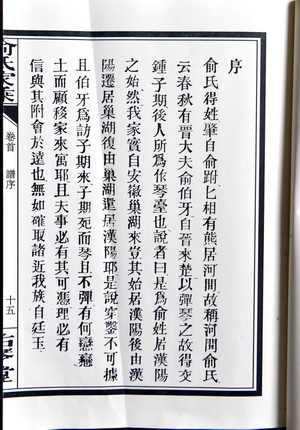 序
俞氏得姓肇自俞跗匕相有熊居河間故稱河間俞氏
云春秋有晋大夫俞伯牙自晉來楚以彈琴之故得交
鍾子期後人所為依琴臺也說者曰是為俞姓居漢陽
之始然我家實自安徽巢湖來豈其始居漢陽後由漢
陽遷居巢湖復由巢湖還居漢陽耶是說穿鑿不可據
且伯牙為訪子期來子期死而琴且不彈有何戀戀
土而顧移家來寓耶且天事必有其可憑理必有
信與其附會於遠也無如確取諸近我族自廷玉
俞氏家族
卷首
譜序
十五
堂